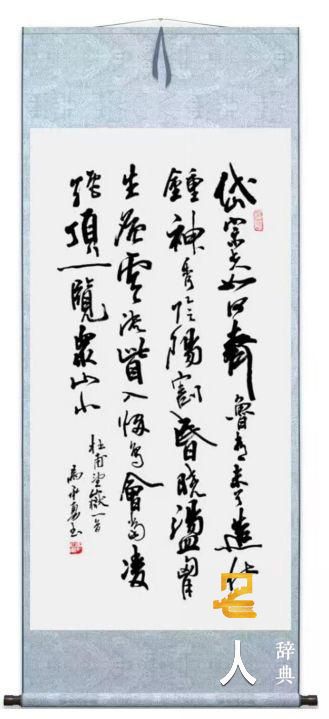 岱宗夫如何齊魯青未了造化
鍾神秀陰陽割昏曉盪胸
生層雲決眥入歸鳥會當凌
絶頂一覽衆山小
杜甫望嶽一首
名人辞典